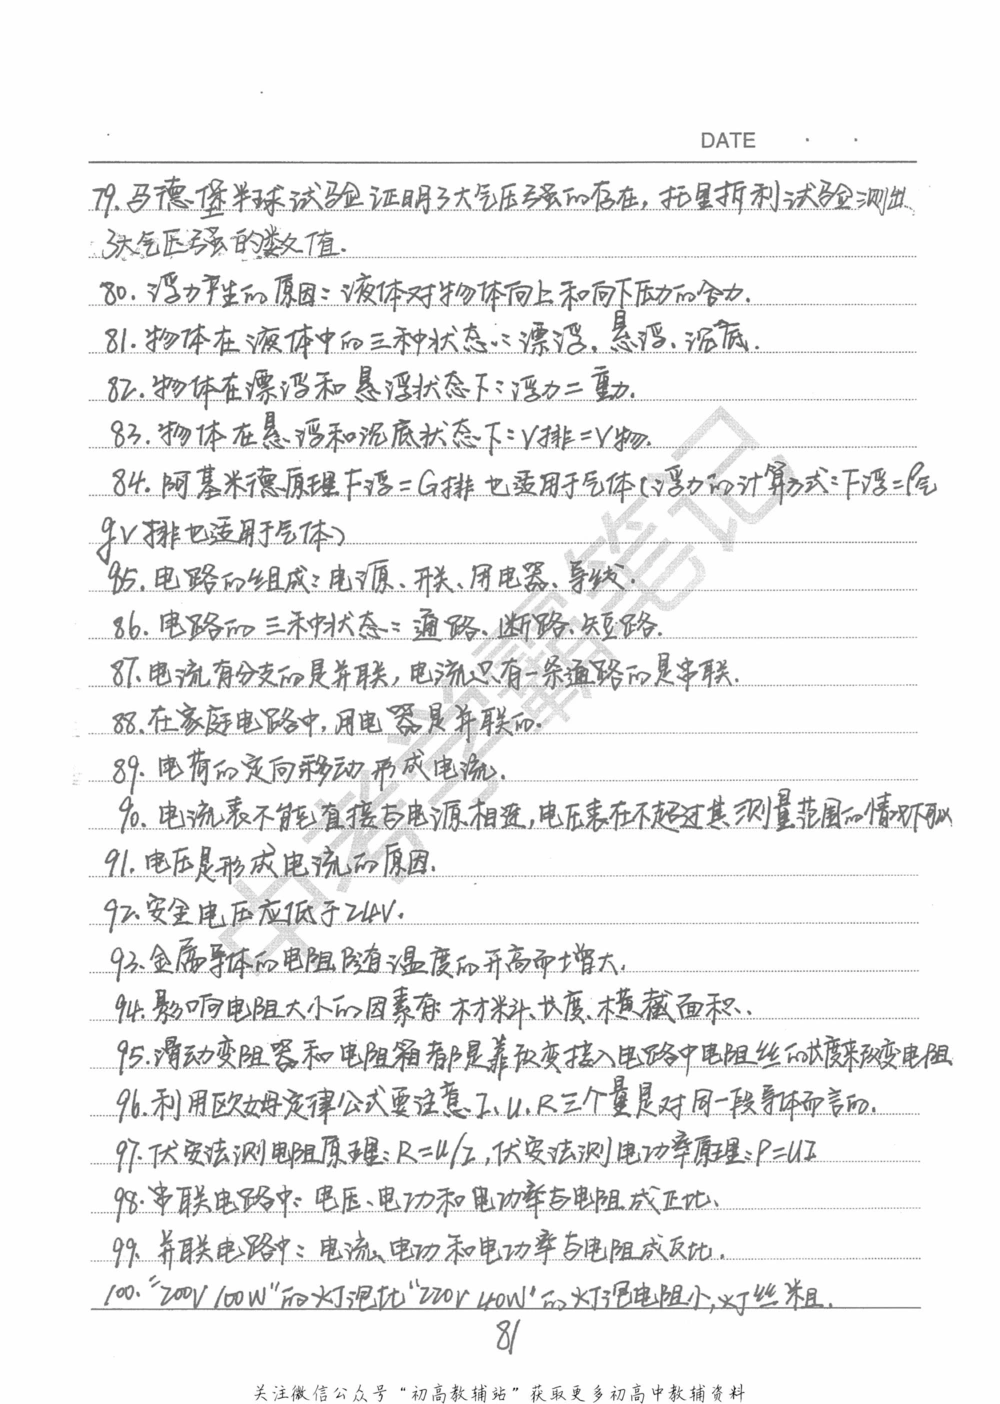 DATE
79.马德堡半球试验证明了大气压强的存在，托里拆利试验测出
了大气压强的数值.
80.浮力产生的原因：液体对物体向上和向下压力的合力.
81.物体在液体中的三种状态：漂浮、悬浮、沉底.
82.物体在漂浮和悬浮状态下：浮力=重力.
83.物体在悬浮和沉底状态下：V排=V物.
84.阿基米德原理F浮=G排也适用于气体(浮力的计算方式：F浮=ρ气
gV排也适用于气体)
85.电路的组成：电源、开关、用电器、导线.
86.电路的三种状态：通路、断路、短路.
87.电流有分支的是并联，电流只有一条通路的是串联.
88.在家庭电路中，用电器是并联的.
89.电荷的定向移动形成电流.
90.电流表不能直接与电源相连，电压表在不超过其测量范围的情况下可以
91.电压是形成电流的原因.
92.安全电压应低于24V.
93.金属导体的电阻随温度的升高而增大.
94.影响电阻大小的因素有：材料、长度、横截面积.
95.滑动变阻器和电阻箱都是靠改变接入电路中电阻丝的长度来改变电阻
96.利用欧姆定律公式要注意I、U、R三个量是对同一段导体而言的.
97.伏安法测电阻原理：R=U/I，伏安法测电功率原理：P=UI
98.串联电路中：电压、电功和电功率与电阻成正比、
99.并联电路中：电流、电功和电功率与电阻成反比.
100.“200V 100W”的灯泡比“220V 40W”的灯泡电阻小，灯丝粗.
中考学霸笔记
81
关注微信公众号“初高教辅站”获取更多初高中教辅资料